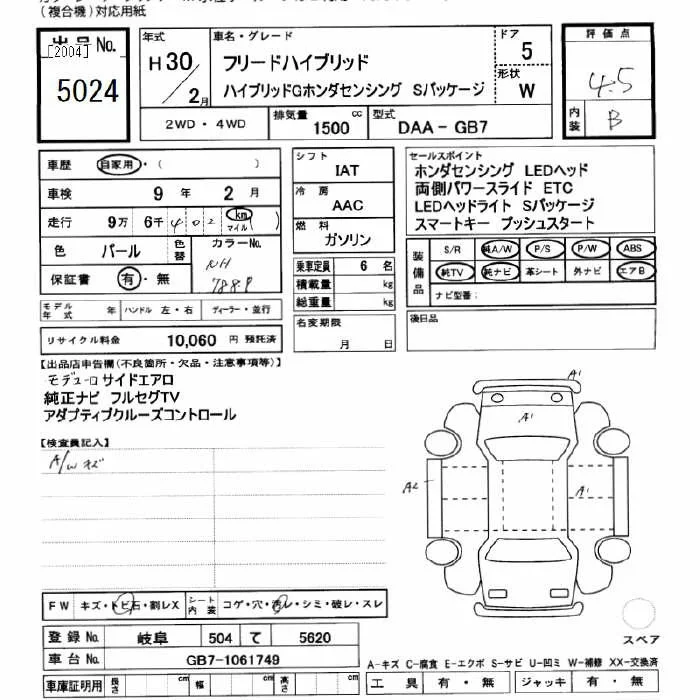 (複合機)対応用紙
出品No. [2004]
5024
年式 H30/2月
車名・グレード
フリードハイブリッド
ハイブリッドGホンダセンシング Sパッケージ
ドア 5
形状 W
評価点 4.5
内装 B
2WD・4WD
排気量 1500 cc
型式 DAA-GB7
車歴 自家用・( )
車検 9年 2月
走行 9万 6千 402 km (マイル)
色 パール
色替
カラーNo. NH 788.P
保証書 有・無
シフト IAT
冷房 AAC
燃料 ガソリン
乗車定員 6 名
積載量 kg
総重量 kg
セールスポイント
ホンダセンシング LEDヘッド
両側パワースライド ETC
LEDヘッドライト Sパッケージ
スマートキー プッシュスタート
装備品
S/R 純A/W P/S P/W ABS
純TV 純ナビ 革シート 外ナビ エアB
ナビ型番:
モデル年式 年 ハンドル 左・右 ディーラー・並行
リサイクル料金 10,060 円 預託済
名変期限 月 日
後日品
【出品店申告欄(不良箇所・欠品・注意事項等)】
モデューロ サイドエアロ
純正ナビ フルセグTV
アダプティブクルーズコントロール
【検査員記入】
A/W キズ
A1
A1
A2
A1
FW キズ・トビ石・割レX
シート内装 コゲ・穴・汚レ・シミ・破レ・スレ
登録No. 岐阜 504 て 5620
車台No. GB7-1061749
車庫証明用 長さ cm 幅 cm 高さ cm
スペア
A-キズ C-腐食 E-エクボ S-サビ U-凹ミ W-補修 XX-交換済
工具 有・無 ジャッキ 有・無